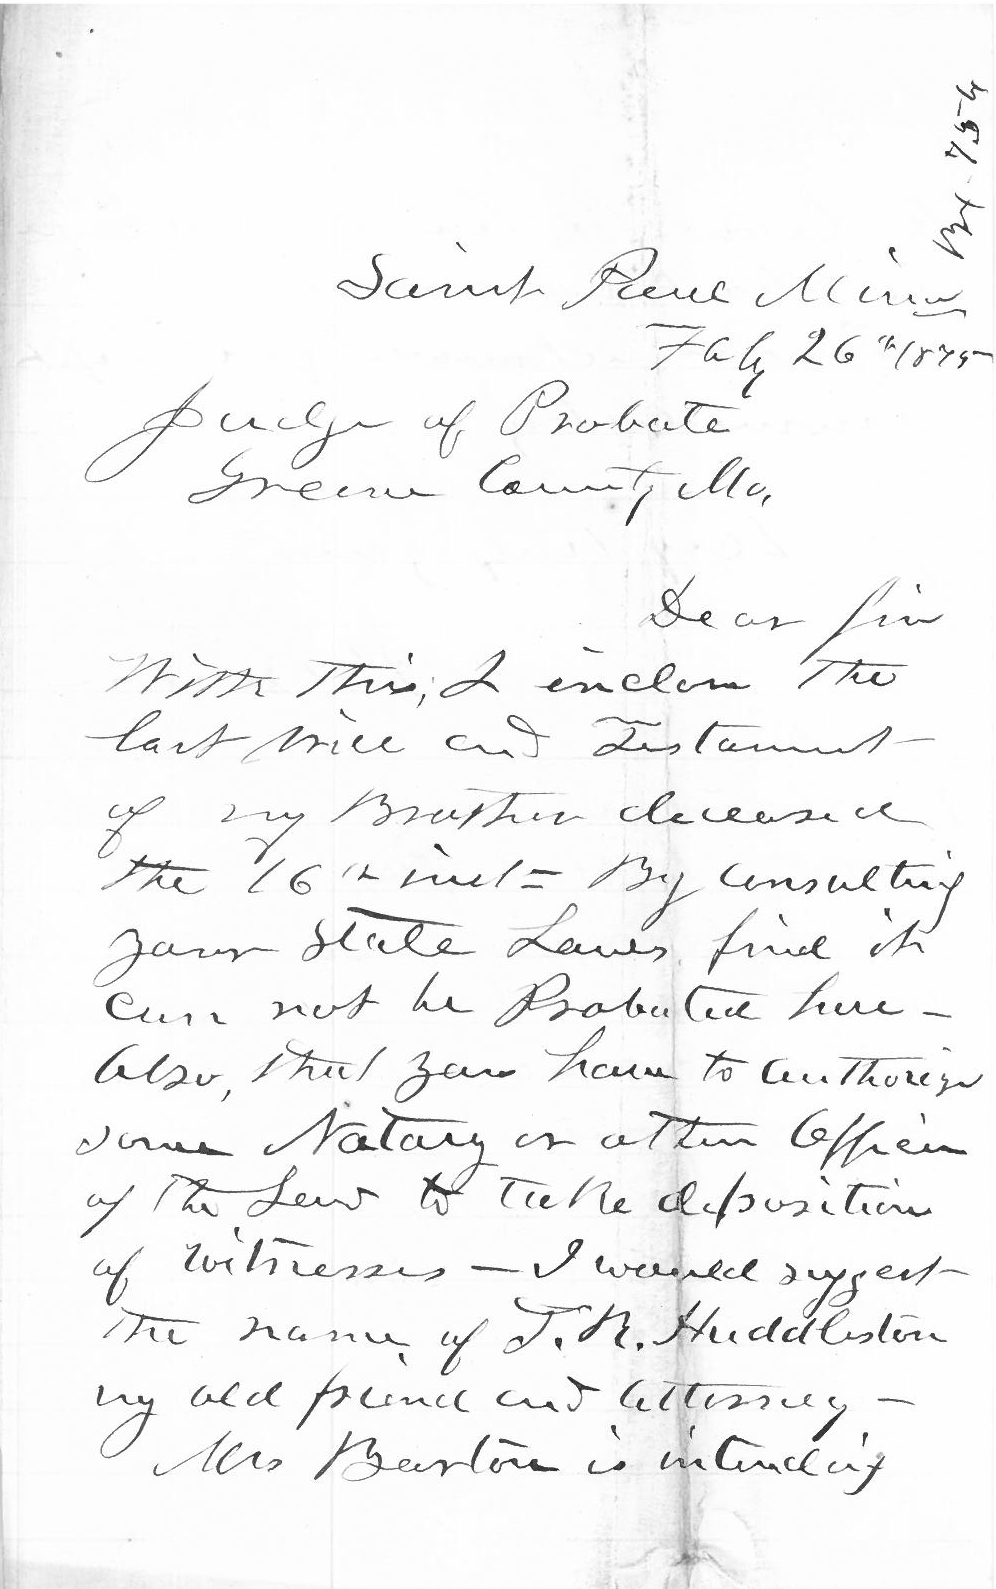 Bx 75-4
Saint Paul Minn
Feby 26th 1875
Judge of Probate
Greene County Mo.
Dear Sir
With this, I enclose the
last Will and Testament
of my Brother deceased
the 16th inst = By consulting
your State Laws find it
can not be Probated here -
Also, that you have to authorize
some Notary or other Officer
of the Law to take deposition
of witnesses - I would suggest
the name of T. R. Huddleston
my old friend and Attorney -
Mrs Barton is intending